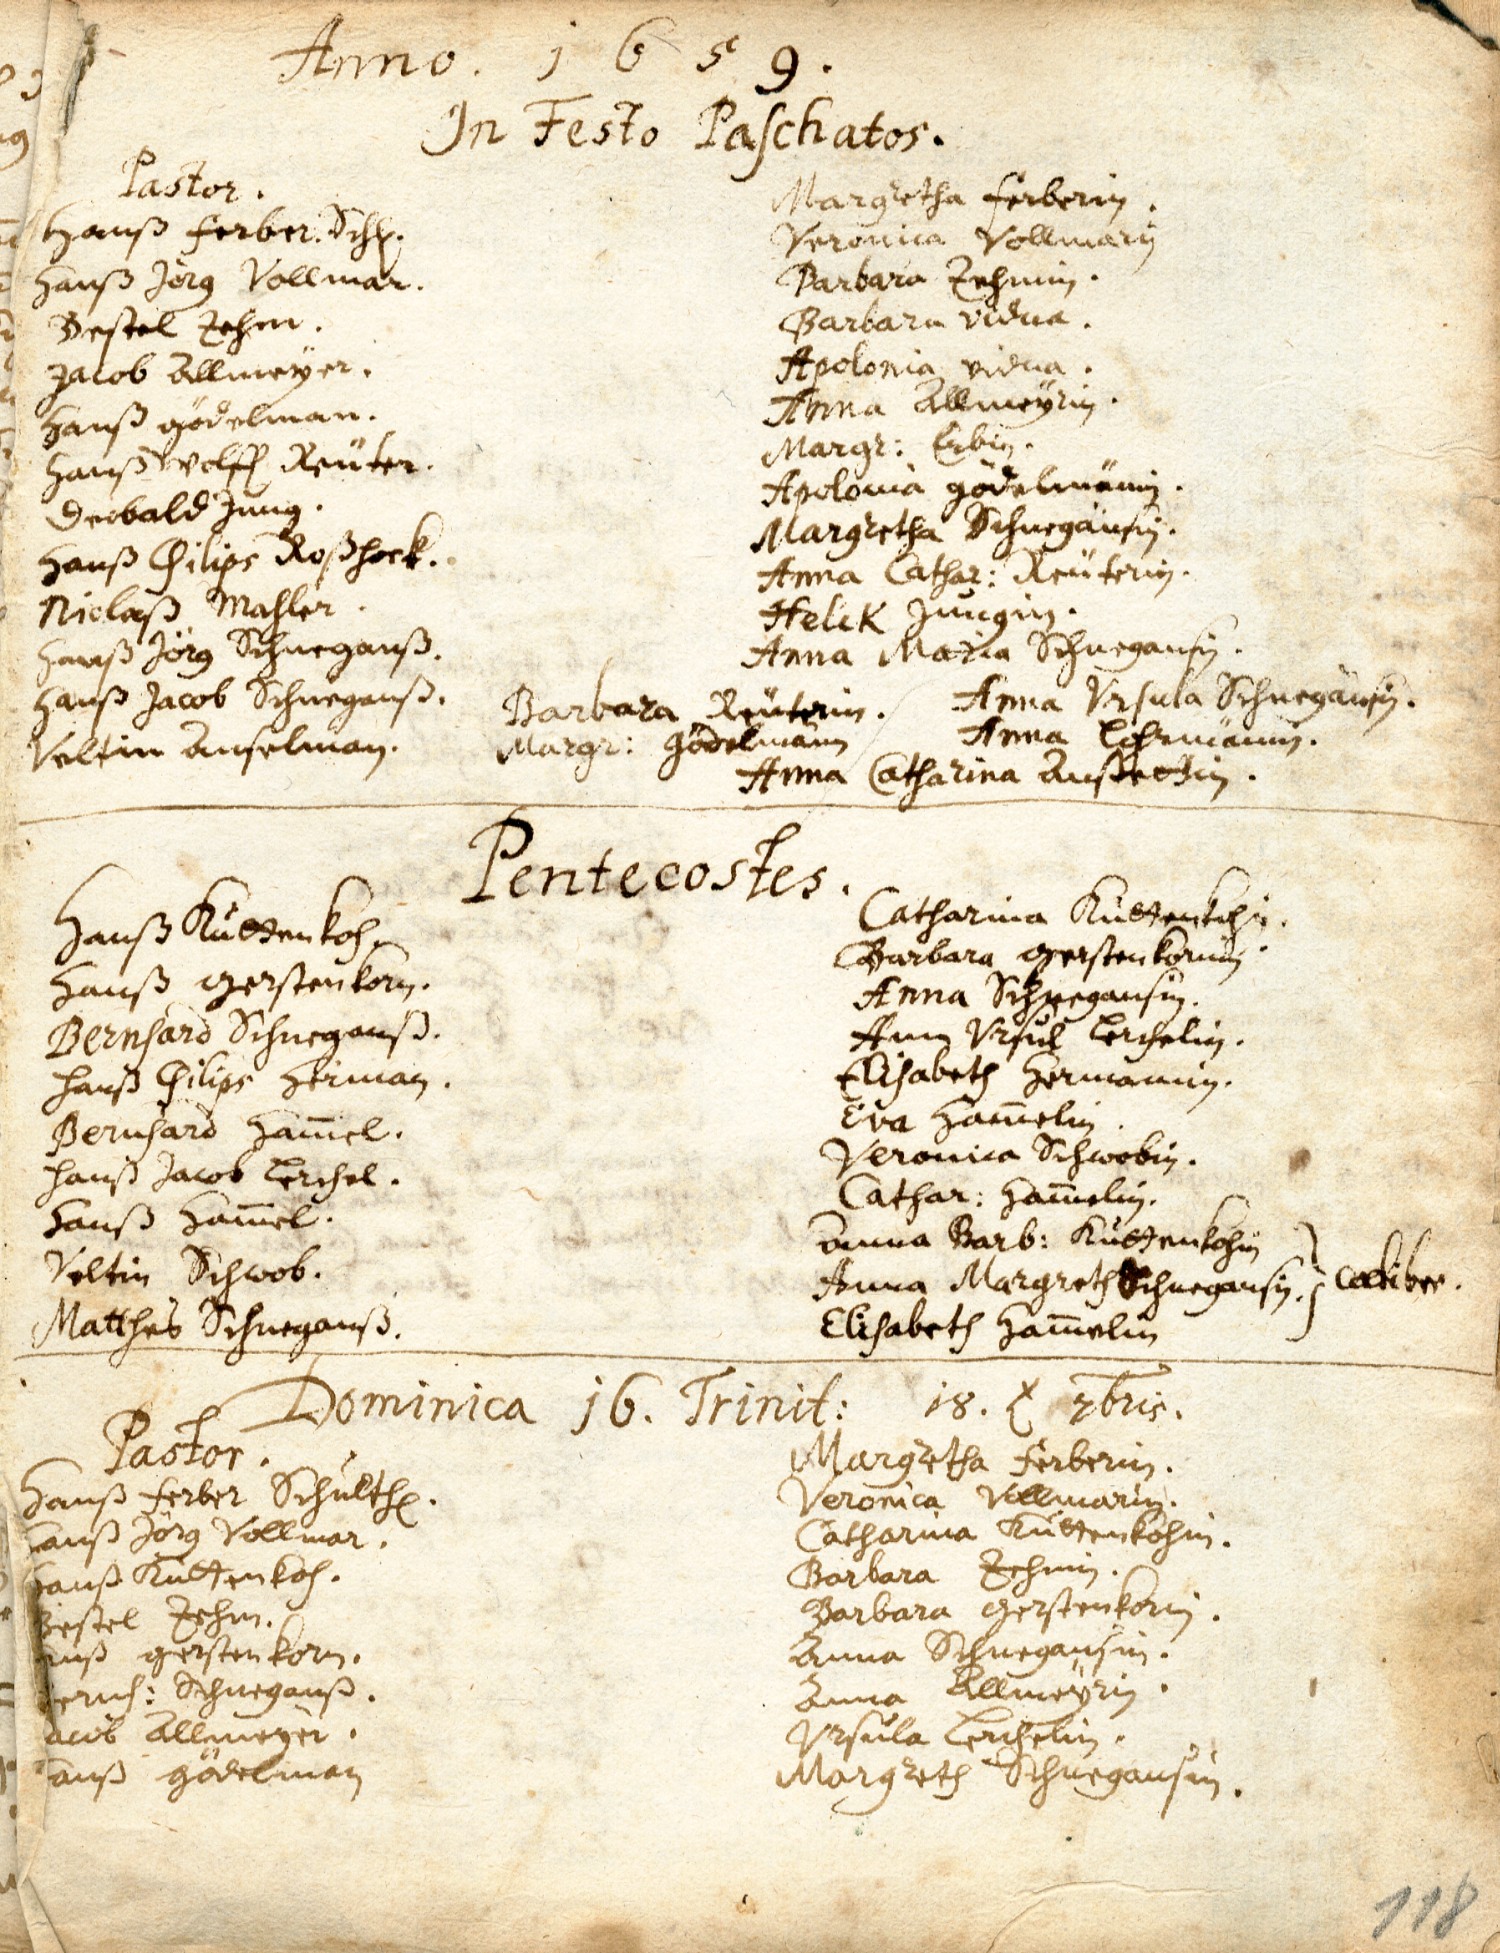 Anno. 1659.
In Festo Paschatos.
Pastor.
Hanß Ferber. Schß.
Hanß Jörg Vollmar.
Bestel Zehm.
Jacob Allmeÿer.
Hanß Gödelman.
Hanß Wolff Reüter.
Deobald Jung.
Hanß Philips Roßhork.
Niclaß Mahler.
Hanß Jörg Schneganß.
Hanß Jacob Schneganß.
Veltin Anselman.
Barbara Reüterin.
Margr: Gödelmänn
Margretha Ferberin.
Veronica Vollmarin
Barbara Zehmin.
Barbara vidua.
Apolonia vidua.
Anna Allmeÿrin.
Margr: Erbin.
Apolonia Gödelmänin.
Margretha Schnegänsin.
Anna Cathar: Reüterin.
Anna Maria Schnegansin.
Anna Vrsula Schnegänsin.
Anna
Anna Catharina
Pentecostes.
Hanß Kuttenkoh.
Hanß Gerstenkorn.
Bernhard Schneganß.
Hanß Philips Herman.
Bernhard Ham̄el.
Hanß Jacob Lerchel.
Hanß Ham̄el.
Veltin Schwob.
Matthes Schneganß.
Catharina Kuttenkohin.
Barbara Gerstenkornin.
Anna Schnegansin.
Ann Vrsul Lerchelin.
Elisabeth Hermannin.
Eva Ham̄elin.
Veronica Schwobin.
Cathar: Ham̄elin.
Anna Barb: Kuttenkohin
Anna Margreth Schnegansin. } Cœlibes.
Elisabeth Ham̄elin
Dominica 16. Trinit: 18. 7bris.
Pastor.
Hanß Ferber Schulthß.
Hanß Jörg Vollmar.
Hanß Kuttenkoh.
Bestel Zehm.
anß Gerstenkorn.
Bernh: Schneganß.
acob Allmeÿer.
anß Gödelman
Margretha Ferberin.
Veronica Vollmarin.
Catharina Kuttenkohin.
Barbara Zehmin.
Barbara Gerstenkorin.
Anna Schnegansin.
Anna Allmeÿrin.
Vrsula Lerchelin.
Margreth Schnegansin.
118